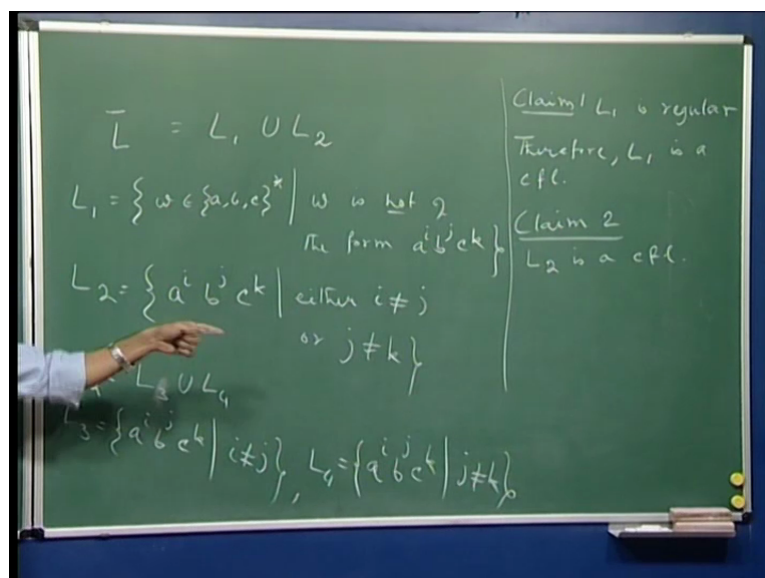 L̄ = L₁ ∪ L₂
L₁ = { w ∈ {a, b, c}* | w is not of
the form aⁱ bʲ cᵏ}.
L₂ = { aⁱ bʲ cᵏ | either i ≠ j
or j ≠ k}
= L₃ ∪ L₄
L₃ = {aⁱ bʲ cᵏ | i ≠ j}, L₄ = {aⁱ bʲ cᵏ | j ≠ k}.
Claim 1 L₁ is regular
Therefore, L₁ is a
cfl.
Claim 2
L₂ is a cfl.